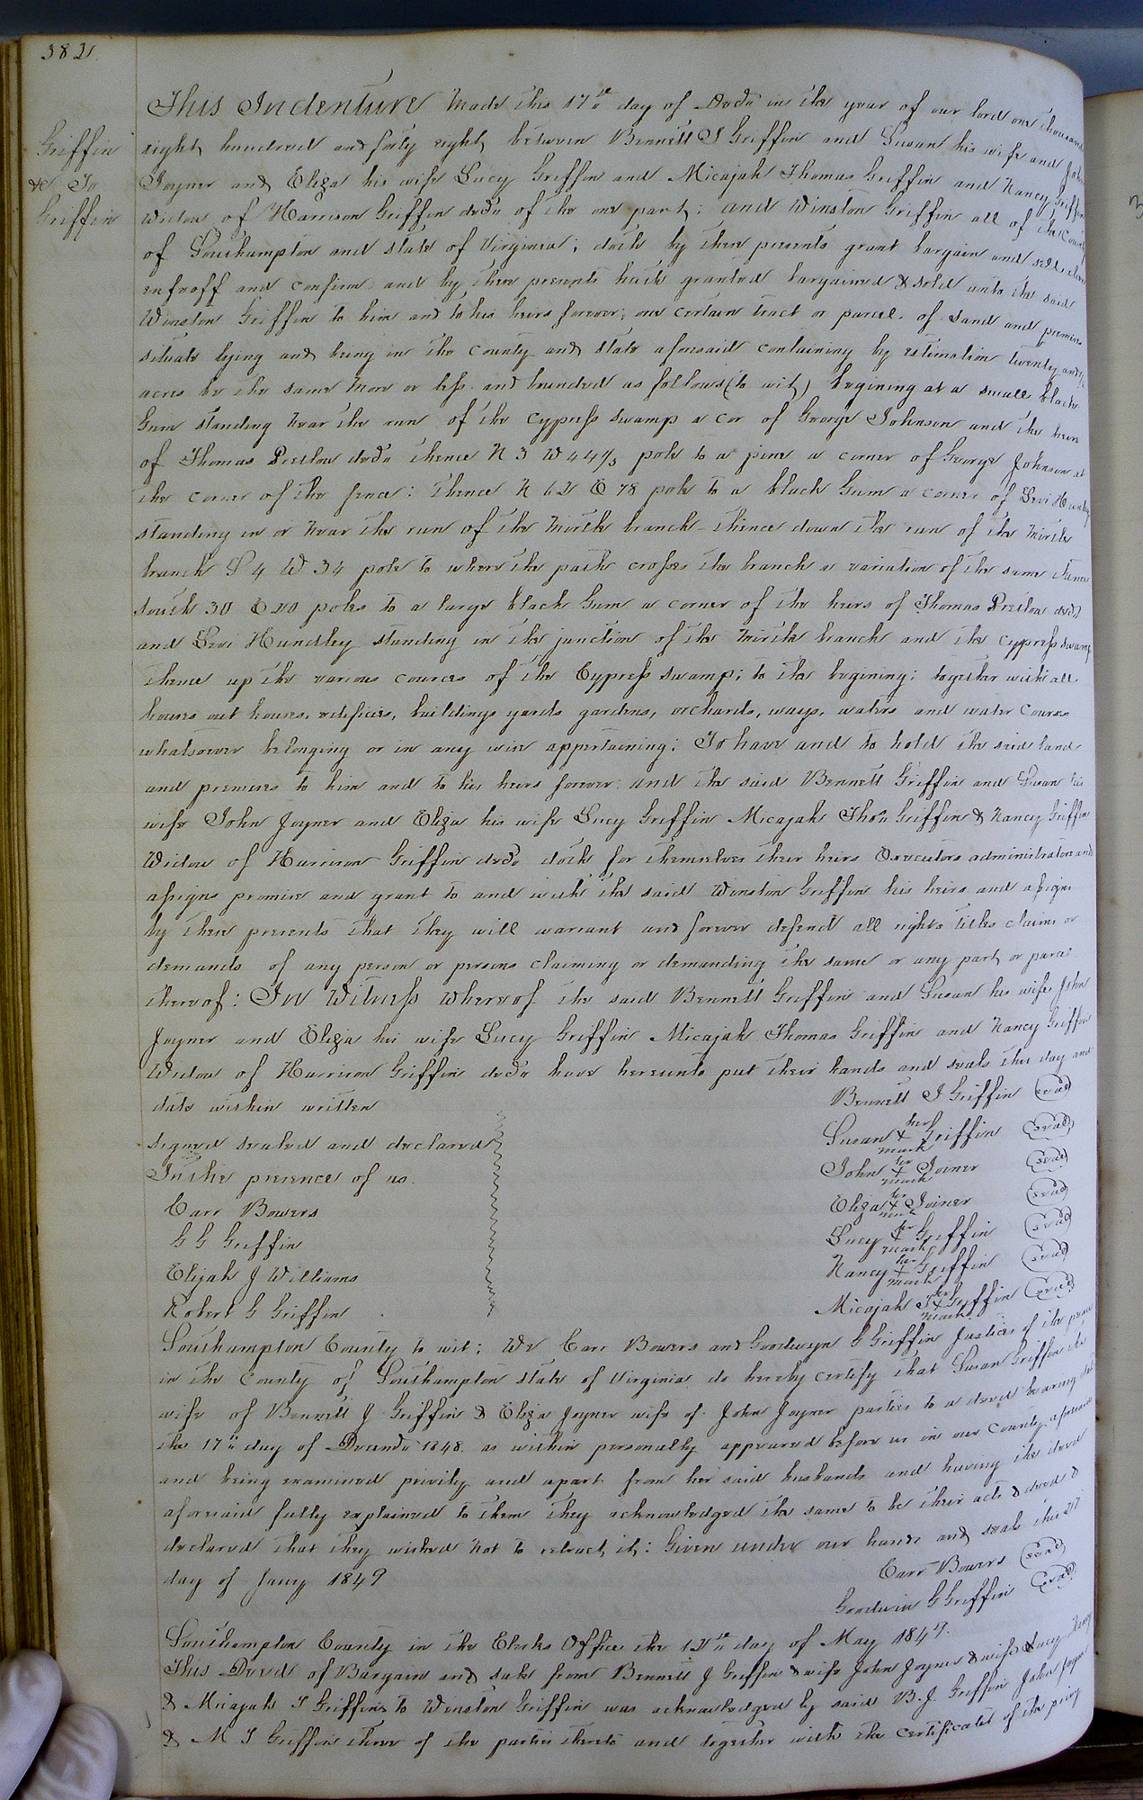 382
Griffin
&c To
Griffin
This Indenture Made this 17th day of Decr in the year of our lord one thousand
eight hundred and forty eight between Bennett J Griffin and Susan his wife and John
Joyner and Eliza his wife Lucy Griffin and Micajah Thomas Griffin and Nancy Griffin
Widow of Harrison Griffin decd of the one part; and Winston Griffin all of the County
of Southampton and state of Virginia; doth by these presents grant bargain and sell
enfeoff and confirm and by these presents hath granted bargained & sold unto the said
Winston Griffin to him and to his heirs forever; one certain tract or parcel of Land and premises
situate lying and being in the county and state aforesaid containing by estimation twenty
acres be the same more or less and bounded as follows (to wit) begining at a small black
Gum standing near the run of the cypress swamp a cor of George Johnson and the heirs
of Thomas Pretlow decd thence N 3 W 44 1/3 pole to a pine a corner of George Johnson at
the corner of the fence: thence N 62 E 78 pole to a black Gum a corner of Levi Huntley
standing in or near the run of the Mirth branch thence down the run of the Mirth
branch S 4 W 34 pole to where the path crosses the branch a variation of the same thence
south 30 E 20 poles to a large black Gum a corner of the heirs of Thomas Pretlow decd
and Levi Huntley standing in the junction of the Mirth branch and the cypress swamp
thence up the various cources of the Cypress swamp; to the begining; together with all
houses out houses, edifices, buildings yards gardens, orchards, ways, waters and water courses
whatsoever belonging or in any wise appertaining: To have and to hold the said land
and premises to him and to his heirs forever. and the said Bennett Griffin and Susan his
wife John Joyner and Eliza his wife Lucy Griffin Micajah Thos Griffin & Nancy Griffin
Widow of Harrison Griffin decd doth for themselves their heirs Executors administrators and
assigns promise and grant to and with the said Winston Griffin his heirs and assigns
by these presents that they will warrant and forever defend all rights titles claims or
demands of any person or persons claiming or demanding the same or any part or parcel
thereof: In Witness whereof the said Bennett Griffin and Susan his wife John
Joyner and Eliza his wife Lucy Griffin Micajah Thomas Griffin and Nancy Griffin
Widow of Harrison Griffin decd have hereunto put their hands and seals the day and
date within written
Bennett J Griffin (seal)
signed sealed and declared
Susan her X mark Griffin (seal)
In the presence of us.
John his X mark Joiner (seal)
Carr Bowers
Eliza her X mark Joiner (seal)
G G Griffin
Lucy her X mark Griffin (seal)
Elijah J Williams
Nancy her X mark Griffin (seal)
Robert G Griffin
Micajah T his X mark Griffin (seal)
Southampton County to wit: We Carr Bowers and Goodwyn G Griffin Justices of the peace
in the County of Southampton state of Virginia do hereby certify that Susan Griffin the
wife of Bennett J Griffin & Eliza Joyner wife of John Joyner parties to a deed bearing date
the 17th day of Decemdr 1848. as within personally appeared before us in our County aforesaid
and being examined privily and apart from her said husbands and having the deed
aforesaid fully explained to them they acknowledged the same to be their acts & deed &
declared that they wished not to retract it: Given under our hands and seals this
day of Jany 1849
Carr Bowers (seal)
Goodwin G Griffin (seal)
Southampton County in the Clerks Office the 12th day of May 1849.
This Deed of Bargain and sale from Bennett J Griffin & wife John Joyner & wife Lucy Nancy
& Micajah T Griffin to Winston Griffin was acknowledged by said B. J. Griffin John Joyner
& M T Griffin three of the parties thereto and together with the certificates of the privy